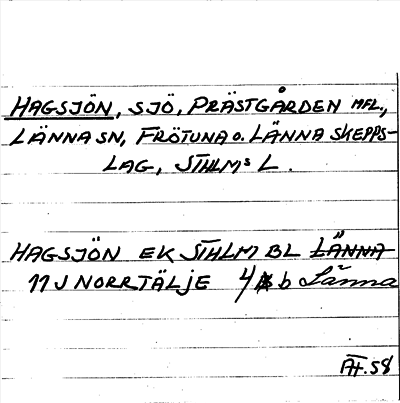 HAGSJÖN, SJÖ, PRÄSTGÅRDEN MFL.,
LÄNNA SN, FRÖTUNA O. LÄNNA SKEPPS-
LAG, STHLMS L.
HAGSJÖN EK STHLM BL LÄNNA
11J NORRTÄLJE 4 b Länna
ÄH.58